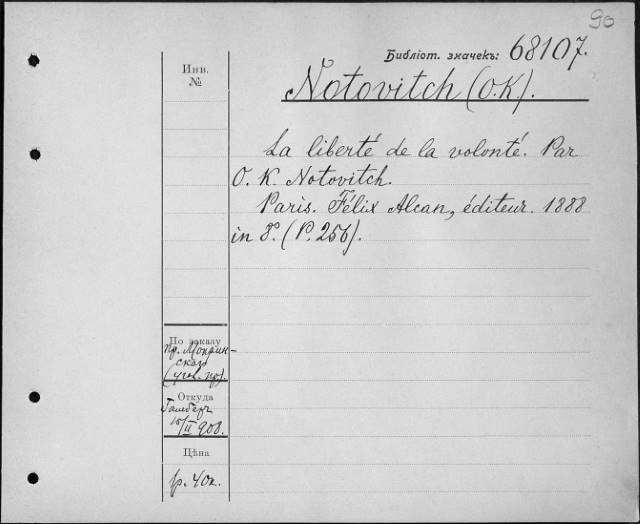 90
Библіот. значекъ: 68107.
Инв.
№
Notovitch (O.K.).
La liberté de la volonté. Par
O. K. Notovitch.
Paris. Félix Alcan, éditeur. 1888
in 8°. (P. 256).
По заказу
пр. Мокрин-
скаго
Откуда
15/II 908.
Цѣна
р. 40к.